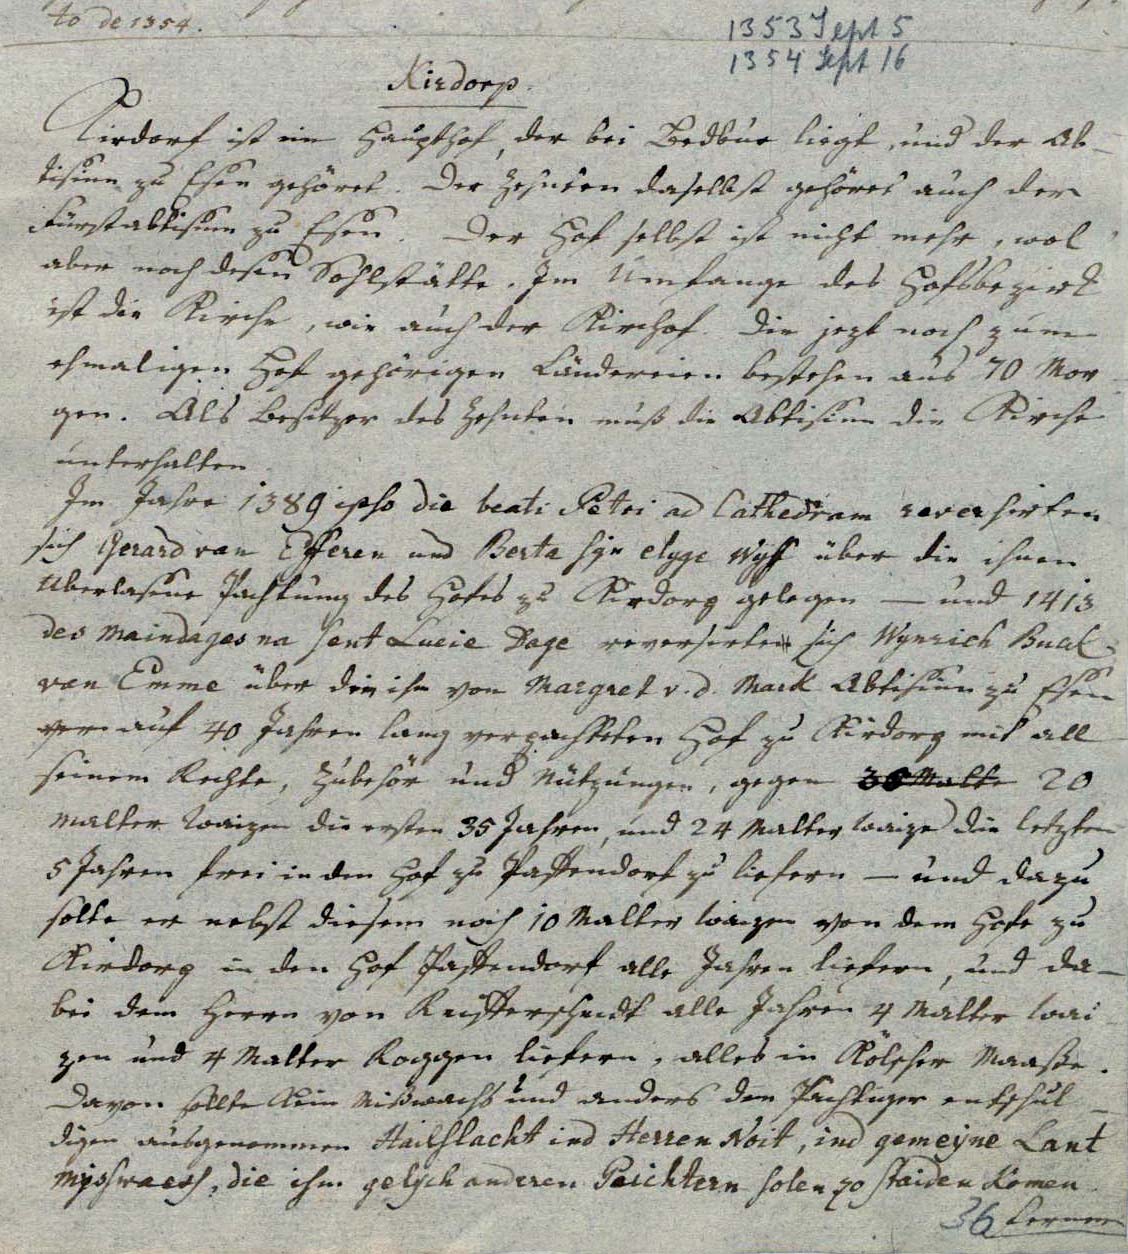 to de 1354.
1353 Sept 5
1354 Sept 16
Kirdorp.
Kirdorf ist ein Haupthof, der bei Bedbur liegt, und der Ab-
tissinn zu Essen gehöret. Der Zehnten daselbst gehöret auch der
Fürstabtissinn zu Essen. Der Hof selbst ist nicht mehr, wol
aber noch dessen Sohlstätte. Im Umfange des Hofsbezirk
ist die Kirche, wie auch der Kirchof. Die jezt noch zum
ehmaligen Hof gehörigen Ländereien bestehen aus 70 Mor
gen. Als Besitzer des Zehnten muß die Abtissinn die Kirche
unterhalten
Im Jahre 1389 ipso die beati Petri ad Cathedram reversirten
sich Gerard van Efferen und Berta syn elyge Wyff über die ihnen
überlassene Pachtung des Hofes zu Kirdorp gelegen — und 1413
des Maindages na sent Lucie Dage reversirten sich Wynrich Buck
van Emme über die ihm von Margret v. d. Mark Abtissinn zu Essen
auf 40 Jahren lang verpachteten Hof zu Kirdorp mit all
seinem Rechte, Zubehör und Nützungen, gegen 20
Malter Waizen die ersten 35 Jahren, und 24 Malter Waize die letzten
5 Jahren frei in den Hof zu Paffendorf zu liefern — und dazu
solte er nebst diesem noch 10 Malter Waizen von dem Hofe zu
Kirdorp in den Hof Paffendorf alle Jahren liefern, und da-
bei dem Herrn von Reifferscheidt alle Jahren 4 Malter Wai
zen und 4 Malter Roggen liefern, alles in Kölscher Maaße.
Davon sollte kein Mißwachs und anders den Pachtuger entschul-
digen ausgenommen Hailslacht ind Herren Noit, ind gemeyne Lant
myswaess, die ihm gelych anderen Peichtern solen zo staiden komen.
36 Ferner